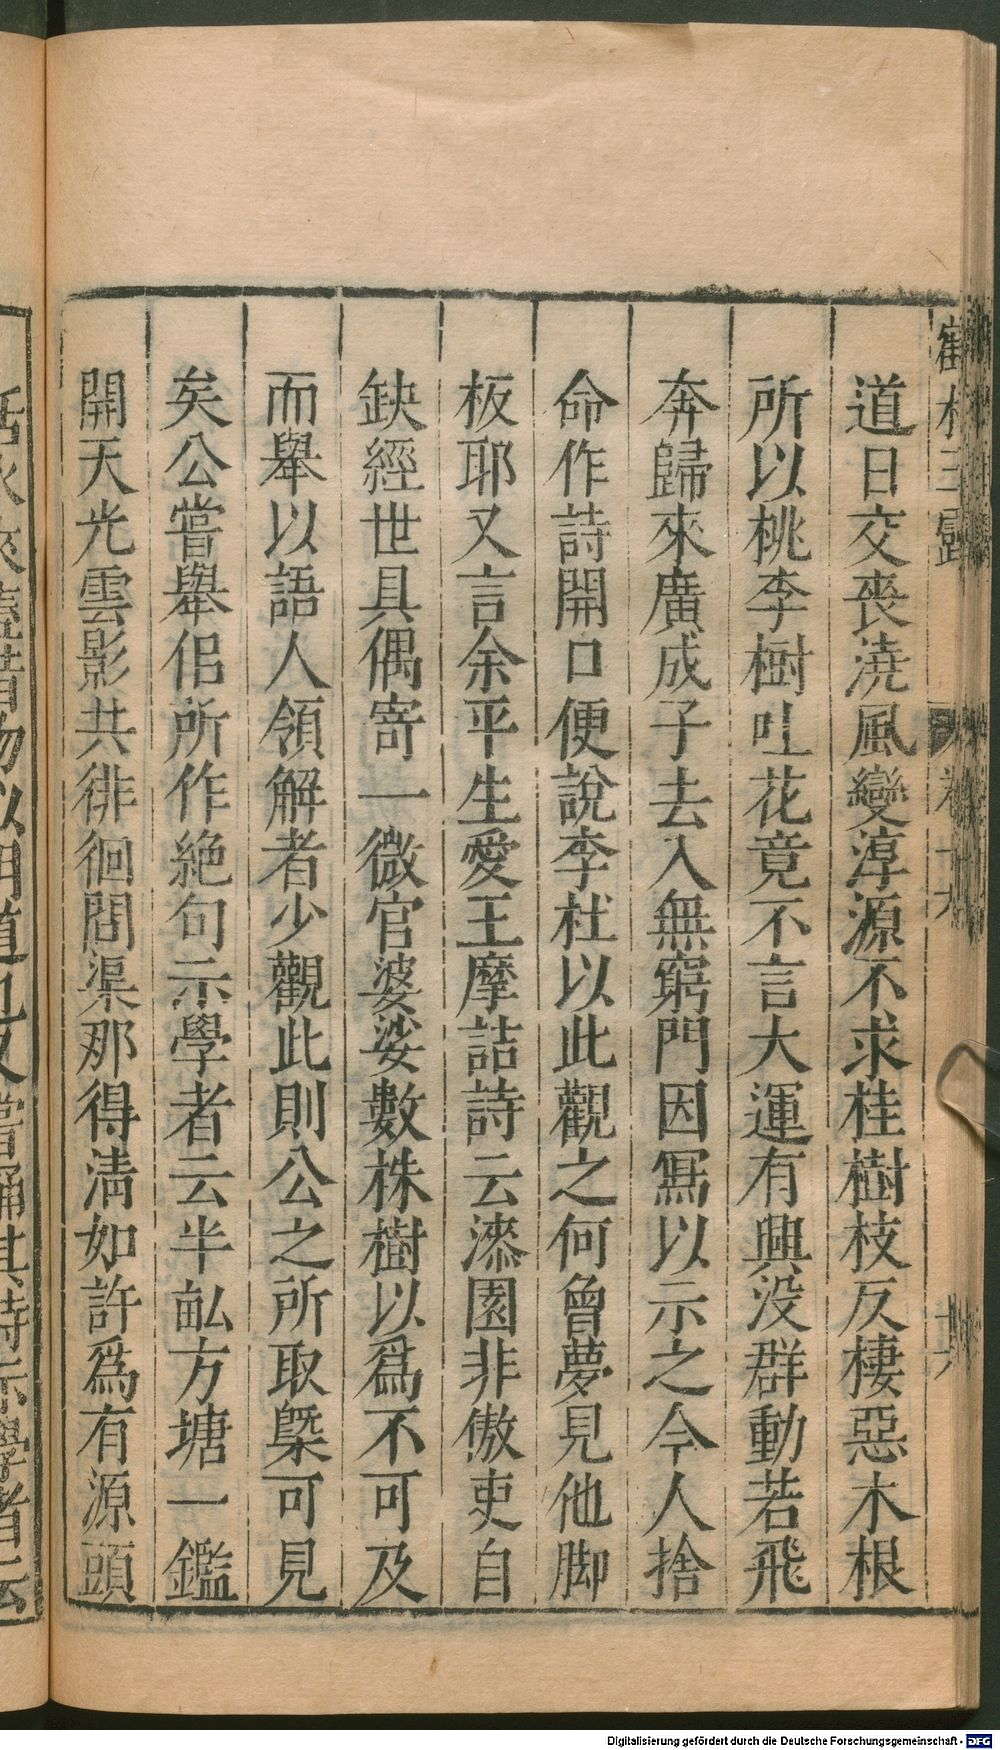 道日交喪澆風變淳源不求桂樹枝反棲惡木根
所以桃李樹吐花竟不言大運有興没群動若飛
奔歸來廣成子去入無窮門因寫以示之今人捨
命作詩開口便說李杜以此觀之何曾夢見他脚
板耶又言余平生愛王摩詰詩云漆園非傲吏自
缺經世具偶寄一微官婆娑數株樹以爲不可及
而舉以語人領解者少觀此則公之所取槩可見
矣公嘗舉侣所作絶句示學者云半畝方塘一鑑
開天光雲影共徘徊問渠那得清如許爲有源頭
活水來蓋借物以明道也又嘗誦其詩示學者云
Digitalisierung gefördert durch die Deutsche Forschungsgemeinschaft - DFG